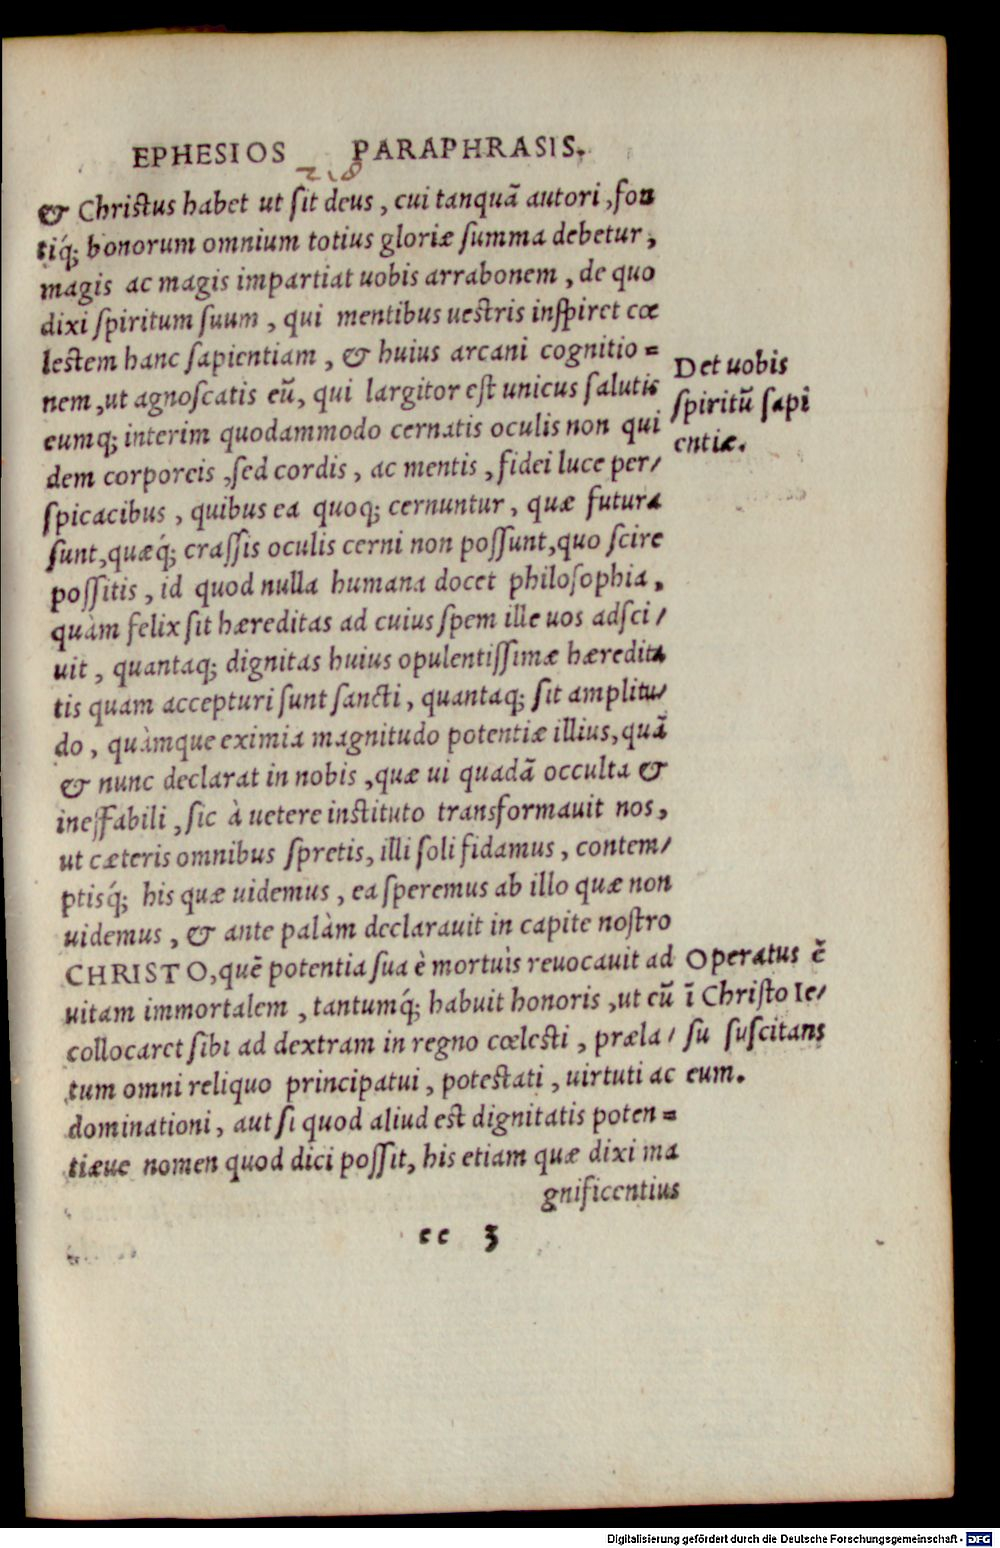 EPHESIOS PARAPHRASIS.
218
& Chriſtus habet ut ſit deus, cui tanquã autori, fon
tiq́; bonorum omnium totius gloriæ ſumma debetur,
magis ac magis impartiat uobis arrabonem, de quo
dixi ſpiritum ſuum, qui mentibus ueſtris inſpiret cœ
leſtem hanc ſapientiam, & huius arcani cognitio=
nem, ut agnoſcatis eũ, qui largitor eſt unicus ſalutis
eumq; interim quodammodo cernatis oculis non qui
dem corporeis, ſed cordis, ac mentis, fidei luce per/
ſpicacibus, quibus ea quoq; cernuntur, quæ futura
ſunt, quæq́; craſſis oculis cerni non poſſunt, quo ſcire
poſſitis, id quod nulla humana docet philoſophia,
quàm felix ſit hæreditas ad cuius ſpem ille uos adſci/
uit, quantaq; dignitas huius opulentiſſimæ hæredita
tis quam accepturi ſunt ſancti, quantaq; ſit amplitu/
do, quàmque eximia magnitudo potentiæ illius, quã
& nunc declarat in nobis, quæ ui quadã occulta &
ineffabili, ſic à uetere inſtituto transformauit nos,
ut cæteris omnibus ſpretis, illi ſoli fidamus, contem/
ptisq́; his quæ uidemus, ea ſperemus ab illo quæ non
uidemus, & ante palàm declarauit in capite noſtro
CHRISTO, quẽ potentia ſua è mortuis reuocauit ad
uitam immortalem, tantumq́; habuit honoris, ut eũ
collocaret ſibi ad dextram in regno cœleſti, præla/
tum omni reliquo principatui, poteſtati, uirtuti ac
dominationi, aut ſi quod aliud eſt dignitatis poten=
tiæue nomen quod dici poſſit, his etiam quæ dixi ma
gnificentius
ee 3
Det uobis
ſpiritũ ſapi
entiæ.
Operatus ẽ
ĩ Chriſto Ie/
ſu ſuſcitans
eum.
Digitalisierung gefördert durch die Deutsche Forschungsgemeinschaft - DFG